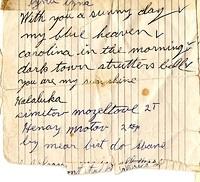 With you a sunny day ✓
my blue heaven ✓
carolina in the morning ✓
dark town strutters ball ✓
you are my sunshine
Halaluka
simitov mozeltove 2T
Henay motov
by mear but du shane